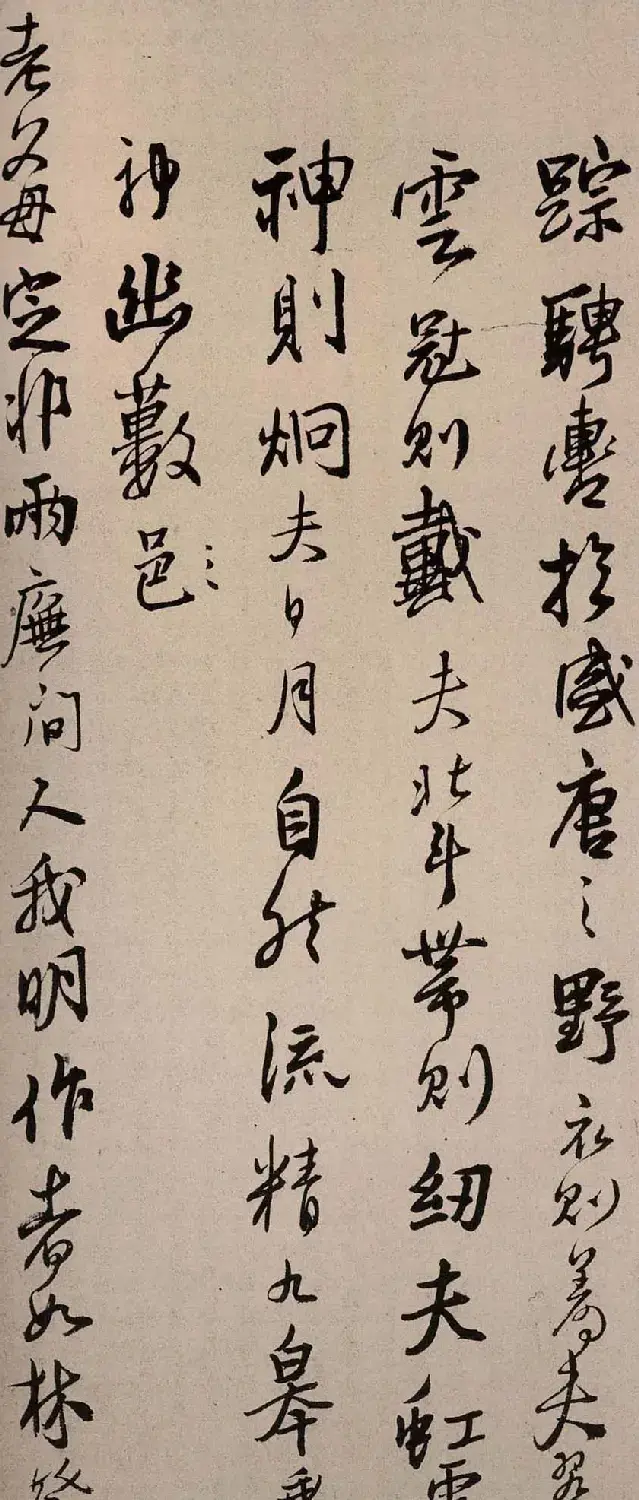 踪騁轡於盛唐之野衣則著夫翠
雲冠則戴夫北斗帶則紉夫虹電
神則炯夫日月自然流精九皋
神幽藪邑〻
老父母定非兩廡間人我明作者如林